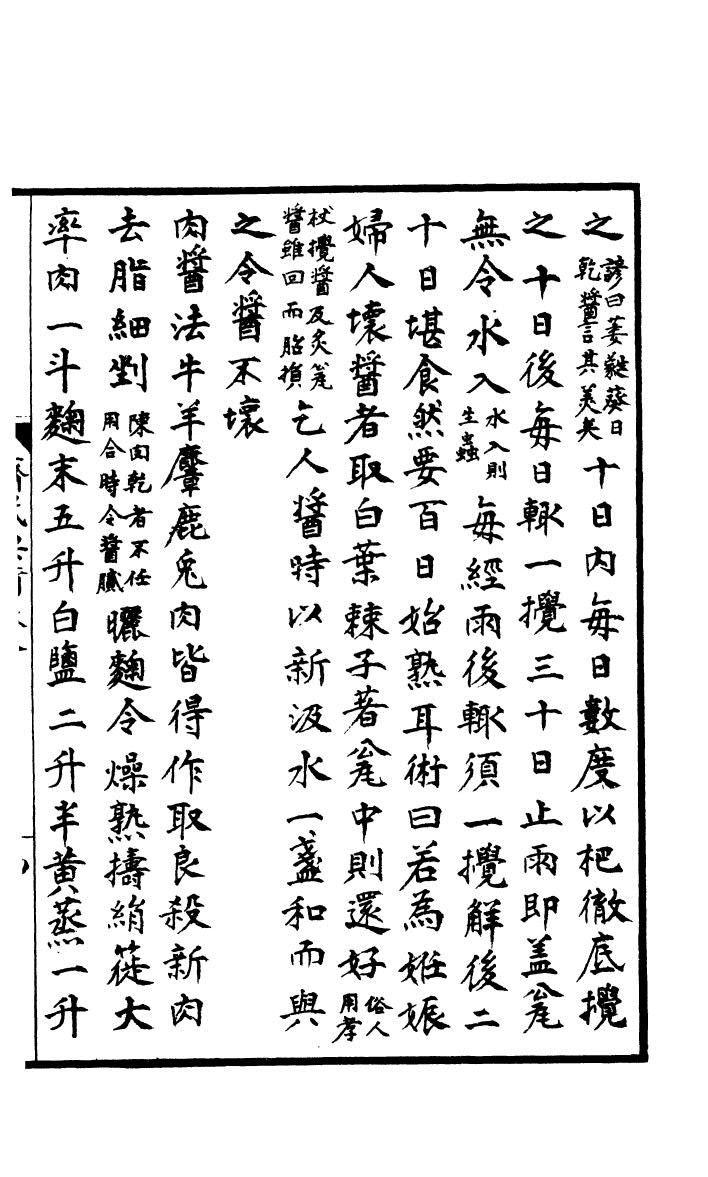 之諺曰萎蕤葵日乾醬言其美矣十日内每日數度以杷徹底攪
之十日後每日輙一攪三十日止雨即盖瓮
無令水入水入則生蟲每經雨後輙須一攪解後二
十日堪食然要百日始熟耳術曰若為妊娠
婦人壞醬者取白葉棘子著瓮中則還好俗人用孝
杖攪醬及炙瓮醬雖回而胎損乞人醬時以新汲水一盞和而與
之令醬不壞
肉醬法牛羊麞鹿兎肉皆得作取良殺新肉
去脂細剉陳肉乾者不任用合時令醬膩曬麴令燥熟擣絹簁大
率肉一斗麴末五升白鹽二升半黄蒸一升